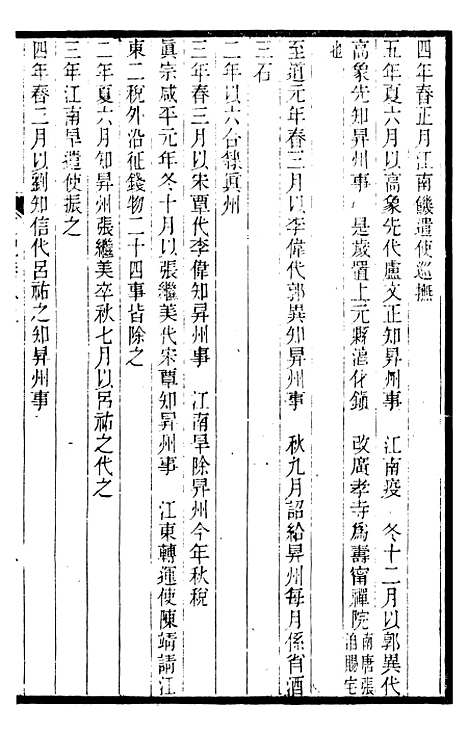 四年春正月江南饑遣使巡撫
五年夏六月以高象先代盧文正知昇州事　江南疫　冬十二月以郭異代
高象先知昇州事　是歲置上元縣淳化鎮　改廣孝寺爲壽甯禪院南唐張洎賜宅
也
至道元年春三月以李偉代郭異知昇州事　秋九月詔給昇州每月係省酒
三石
二年以六合隸眞州
三年春三月以宋覃代李偉知昇州事　江南旱除昇州今年秋稅
眞宗咸平元年冬十月以張繼美代宋覃知昇州事　江東轉運使陳靖請江
東二稅外沿征錢物二十四事皆除之
二年夏六月知昇州張繼美卒秋七月以呂祐之代之
三年江南旱遣使振之
四年春二月以劉知信代呂祐之知昇州事